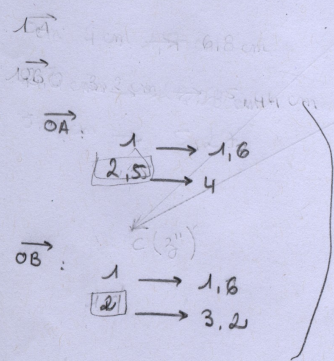 OA :
1 → 1,6
2,5 → 4
C (z'')
OB :
1 → 1,6
2 → 3,2